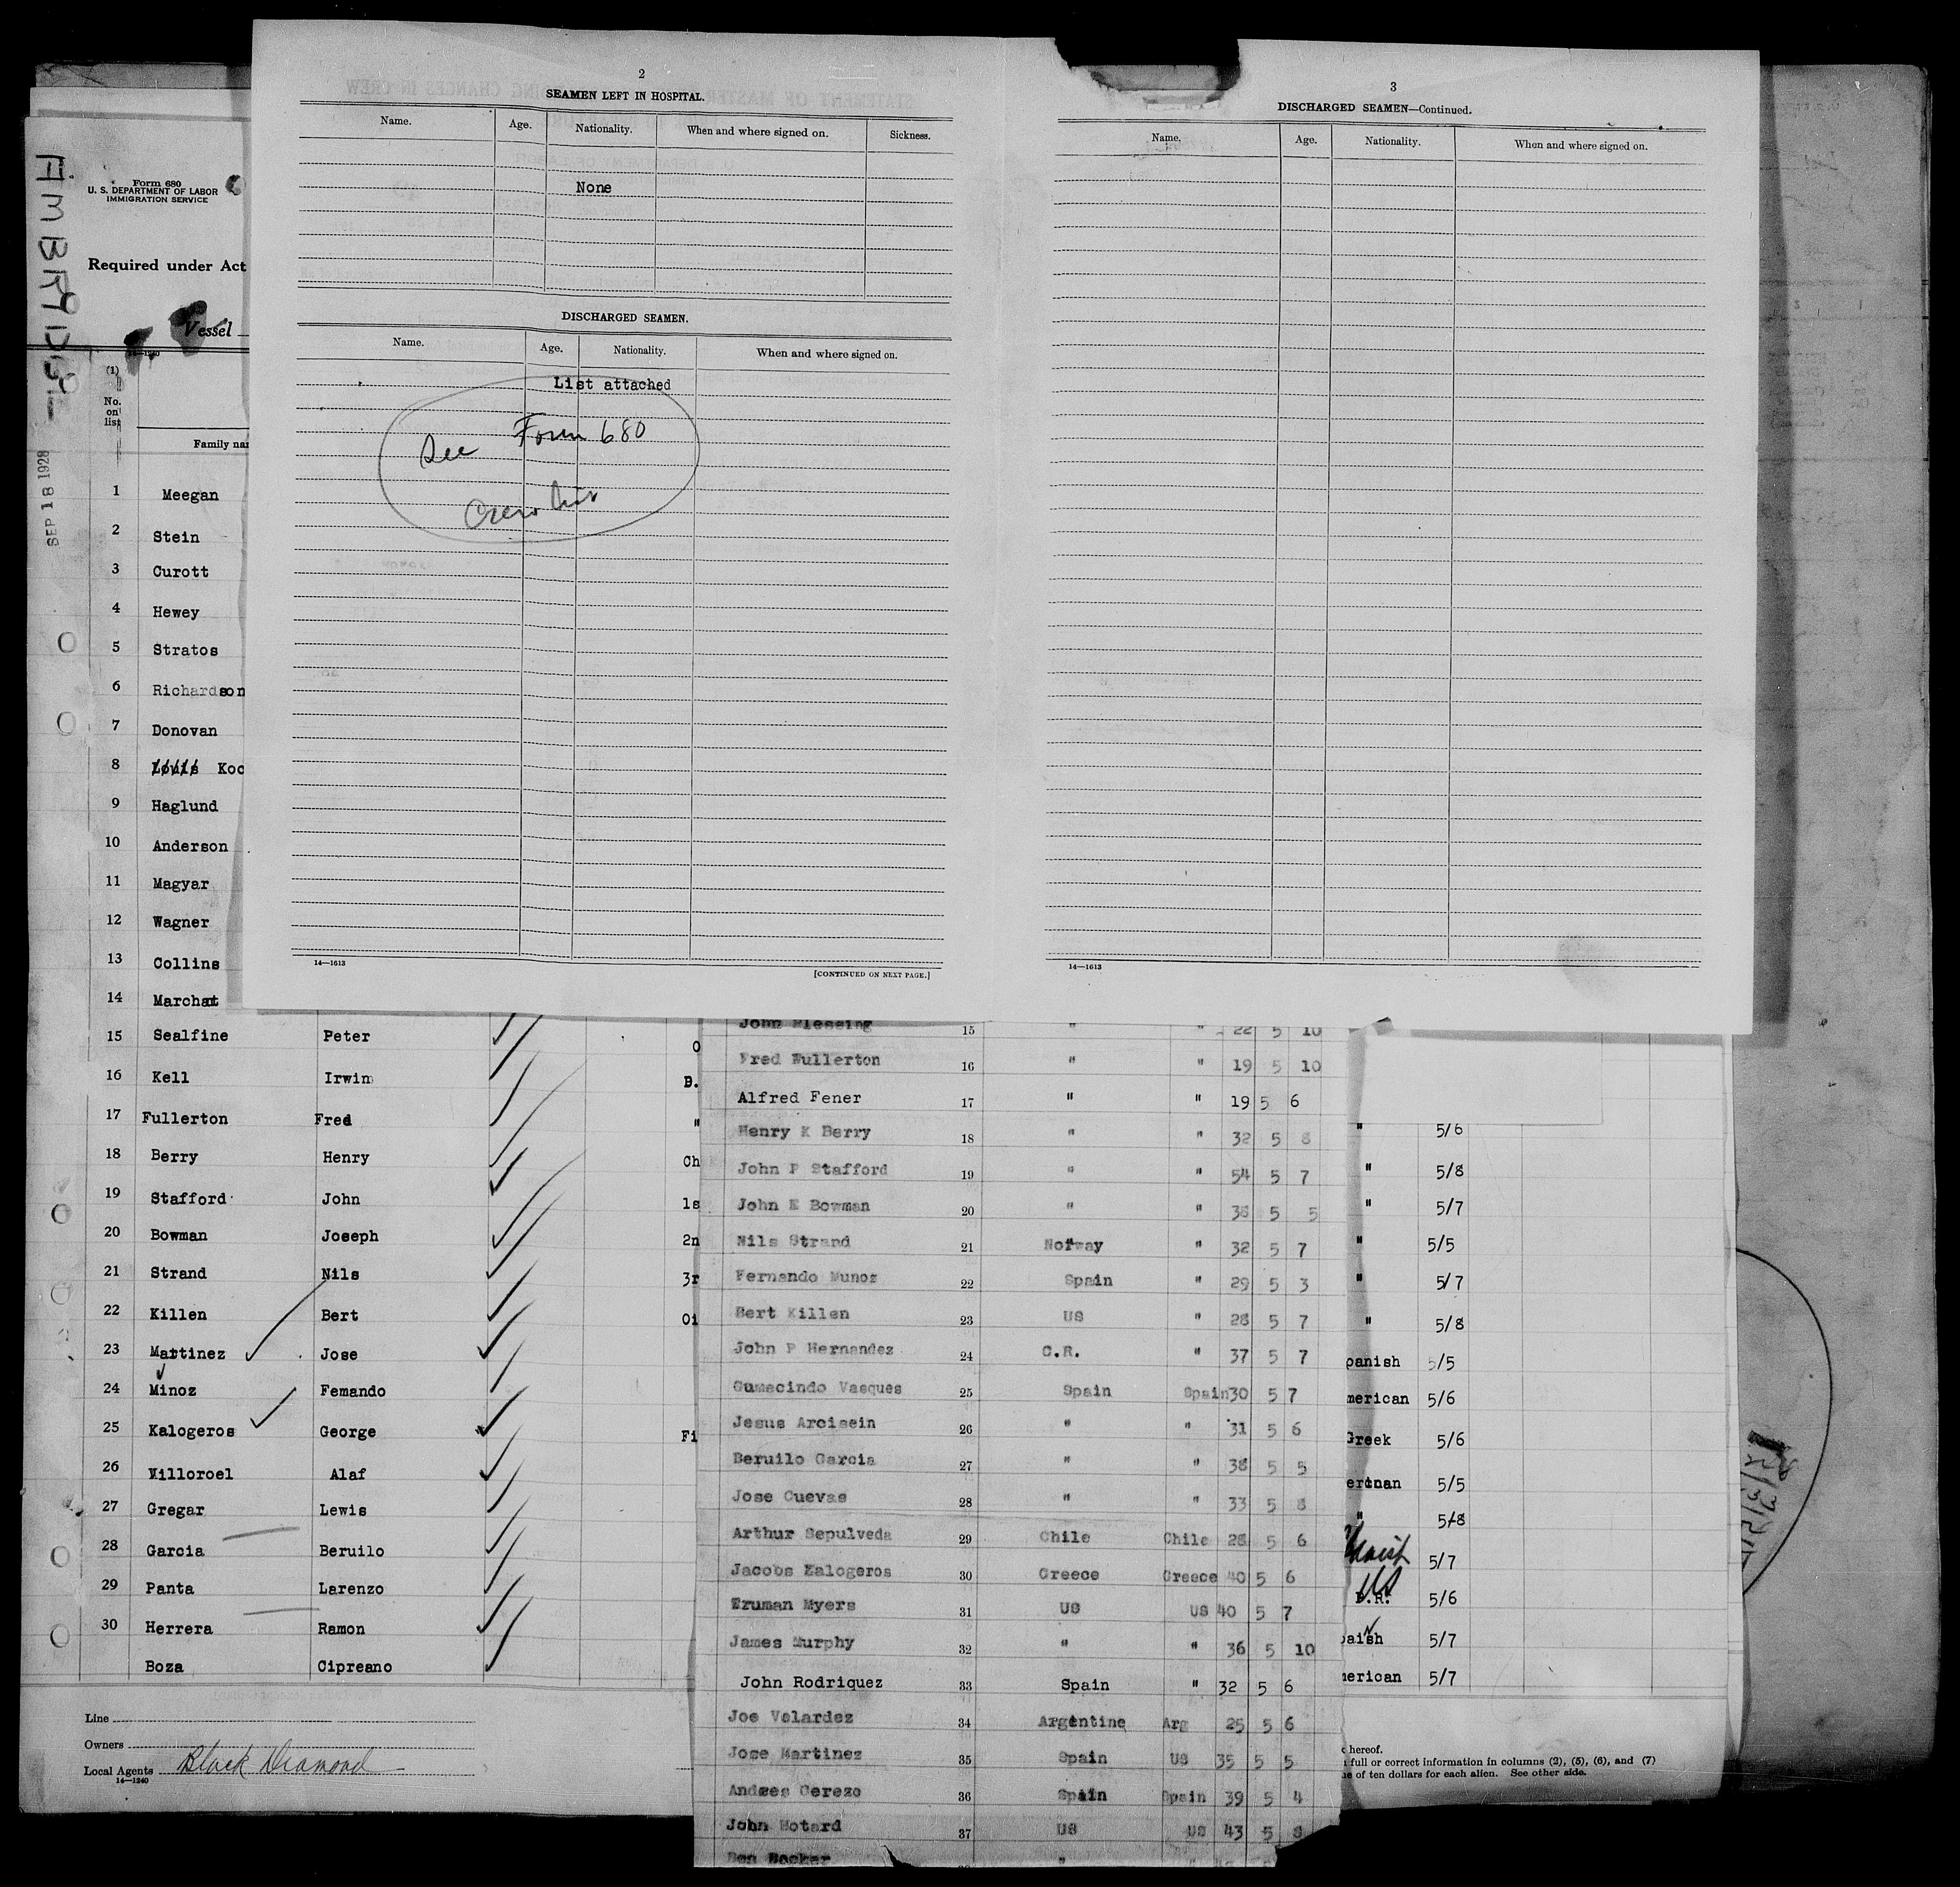 2
SEAMEN LEFT IN HOSPITAL.
Name. Age. Nationality. When and where signed on. Sickness.
None
DISCHARGED SEAMEN.
Name. Age. Nationality. When and where signed on.
List attached
See Form 680
Crew list
14—1613
[CONTINUED ON NEXT PAGE.]
3
DISCHARGED SEAMEN—Continued.
Name. Age. Nationality. When and where signed on.
14—1613
SEP 18 1928
Form 680
U. S. DEPARTMENT OF LABOR
IMMIGRATION SERVICE
Required under Act
Vessel
14—1240
(1)
No. on list
Family nam
1 Meegan
2 Stein
3 Curott
4 Hewey
5 Stratos
6 Richardson
7 Donovan
8 Louis Koc
9 Haglund
10 Anderson
11 Magyar
12 Wagner
13 Collins
14 Marchat
15 Sealfine Peter O
16 Kell Irwin B.
17 Fullerton Fred "
18 Berry Henry Ch
19 Stafford John 1s
20 Bowman Joseph 2n
21 Strand Nils 3r
22 Killen Bert Oi
23 Martinez Jose
24 Minoz Femando
25 Kalogeros George Fi
26 Villoroel Alaf
27 Gregar Lewis
28 Garcia Beruilo
29 Panta Larenzo
30 Herrera Ramon
Boza Cipreano
Line
Owners
Local Agents Black Diamond
14—1240
John Blessing 15 " " 22 5 10
Fred Wullerton 16 " " 19 5 10
Alfred Fener 17 " " 19 5 6
Henry K Berry 18 " " 32 5 8
John P Stafford 19 " " 54 5 7
John E Bowman 20 " " 38 5 5
Nils Strand 21 Norway " 32 5 7
Fernando Munoz 22 Spain " 29 5 3
Bert Killen 23 US " 28 5 7
John P Hernandez 24 C.R. " 37 5 7
Gumecindo Vasques 25 Spain Spain 30 5 7
Jesus Arcisein 26 " " 31 5 6
Beruilo Garcia 27 " " 38 5 5
Jose Cuevas 28 " " 33 5 8
Arthur Sepulveda 29 Chile Chile 28 5 6
Jacobs Kalogeros 30 Greece Greece 40 5 6
Truman Myers 31 US US 40 5 7
James Murphy 32 " " 36 5 10
John Rodriquez 33 Spain " 32 5 6
Joe Velardez 34 Argentine Arg 25 5 6
Jose Martinez 35 Spain US 35 5 5
Andres Cerezo 36 Spain Spain 39 5 4
John Motard 37 US US 43 5 8
Ben Becker
" 5/6
" 5/8
" 5/7
" 5/5
" 5/7
" 5/8
panish 5/5
merican 5/6
Greek 5/6
5/5
" 5/8
5/7
US 5/6
5/7
merican 5/7
hereof.
full or correct information in columns (2), (5), (6), and (7)
ne of ten dollars for each alien. See other side.